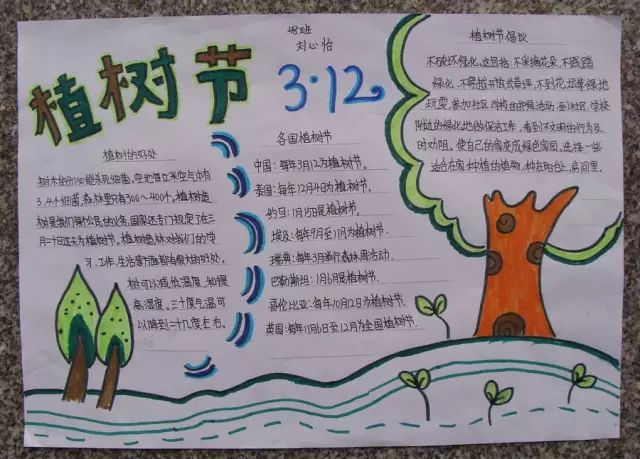 植树节
3·12
刘心怡
植树的好处
树木的分泌能杀死细菌,空地每立米空气中有
3、4个细菌,森林里只有300~400个。植树造
树是我们每个公民的义务,国家还专门规定了在三
月十二这天为植树节。植树造林对我们的学
习、工作、生活等方面都有很大的好处。
树可以减低温度,加提
高湿度。三十度气温可
以降到二十几度左右。
各国植树节
中国:每年3月12为植树节。
泰国:每年12月4日为植树节。
约旦:1月15日是植树节。
埃及:每年9月至1月为植树节。
瑞典:每年3月举行森林周活动。
巴勒斯坦:1月6日是植树节。
哥伦比亚:每年10月12日为植树节。
英国:每年11月6日至12月为全国植树节。
植树节倡议
不破坏绿化,这包括:不采摘花朵、不践踏
绿化、不穿越开放式草坪、不到花坛等绿地
玩耍,参加社区、学校由的保绿活动。到社区、学校
附近的绿化地做保洁工作,看到不文明的行为及
时劝阻。使自己的家变成绿色家园,选择一些
适合在家种植的植物,种在阳台上、房间里。